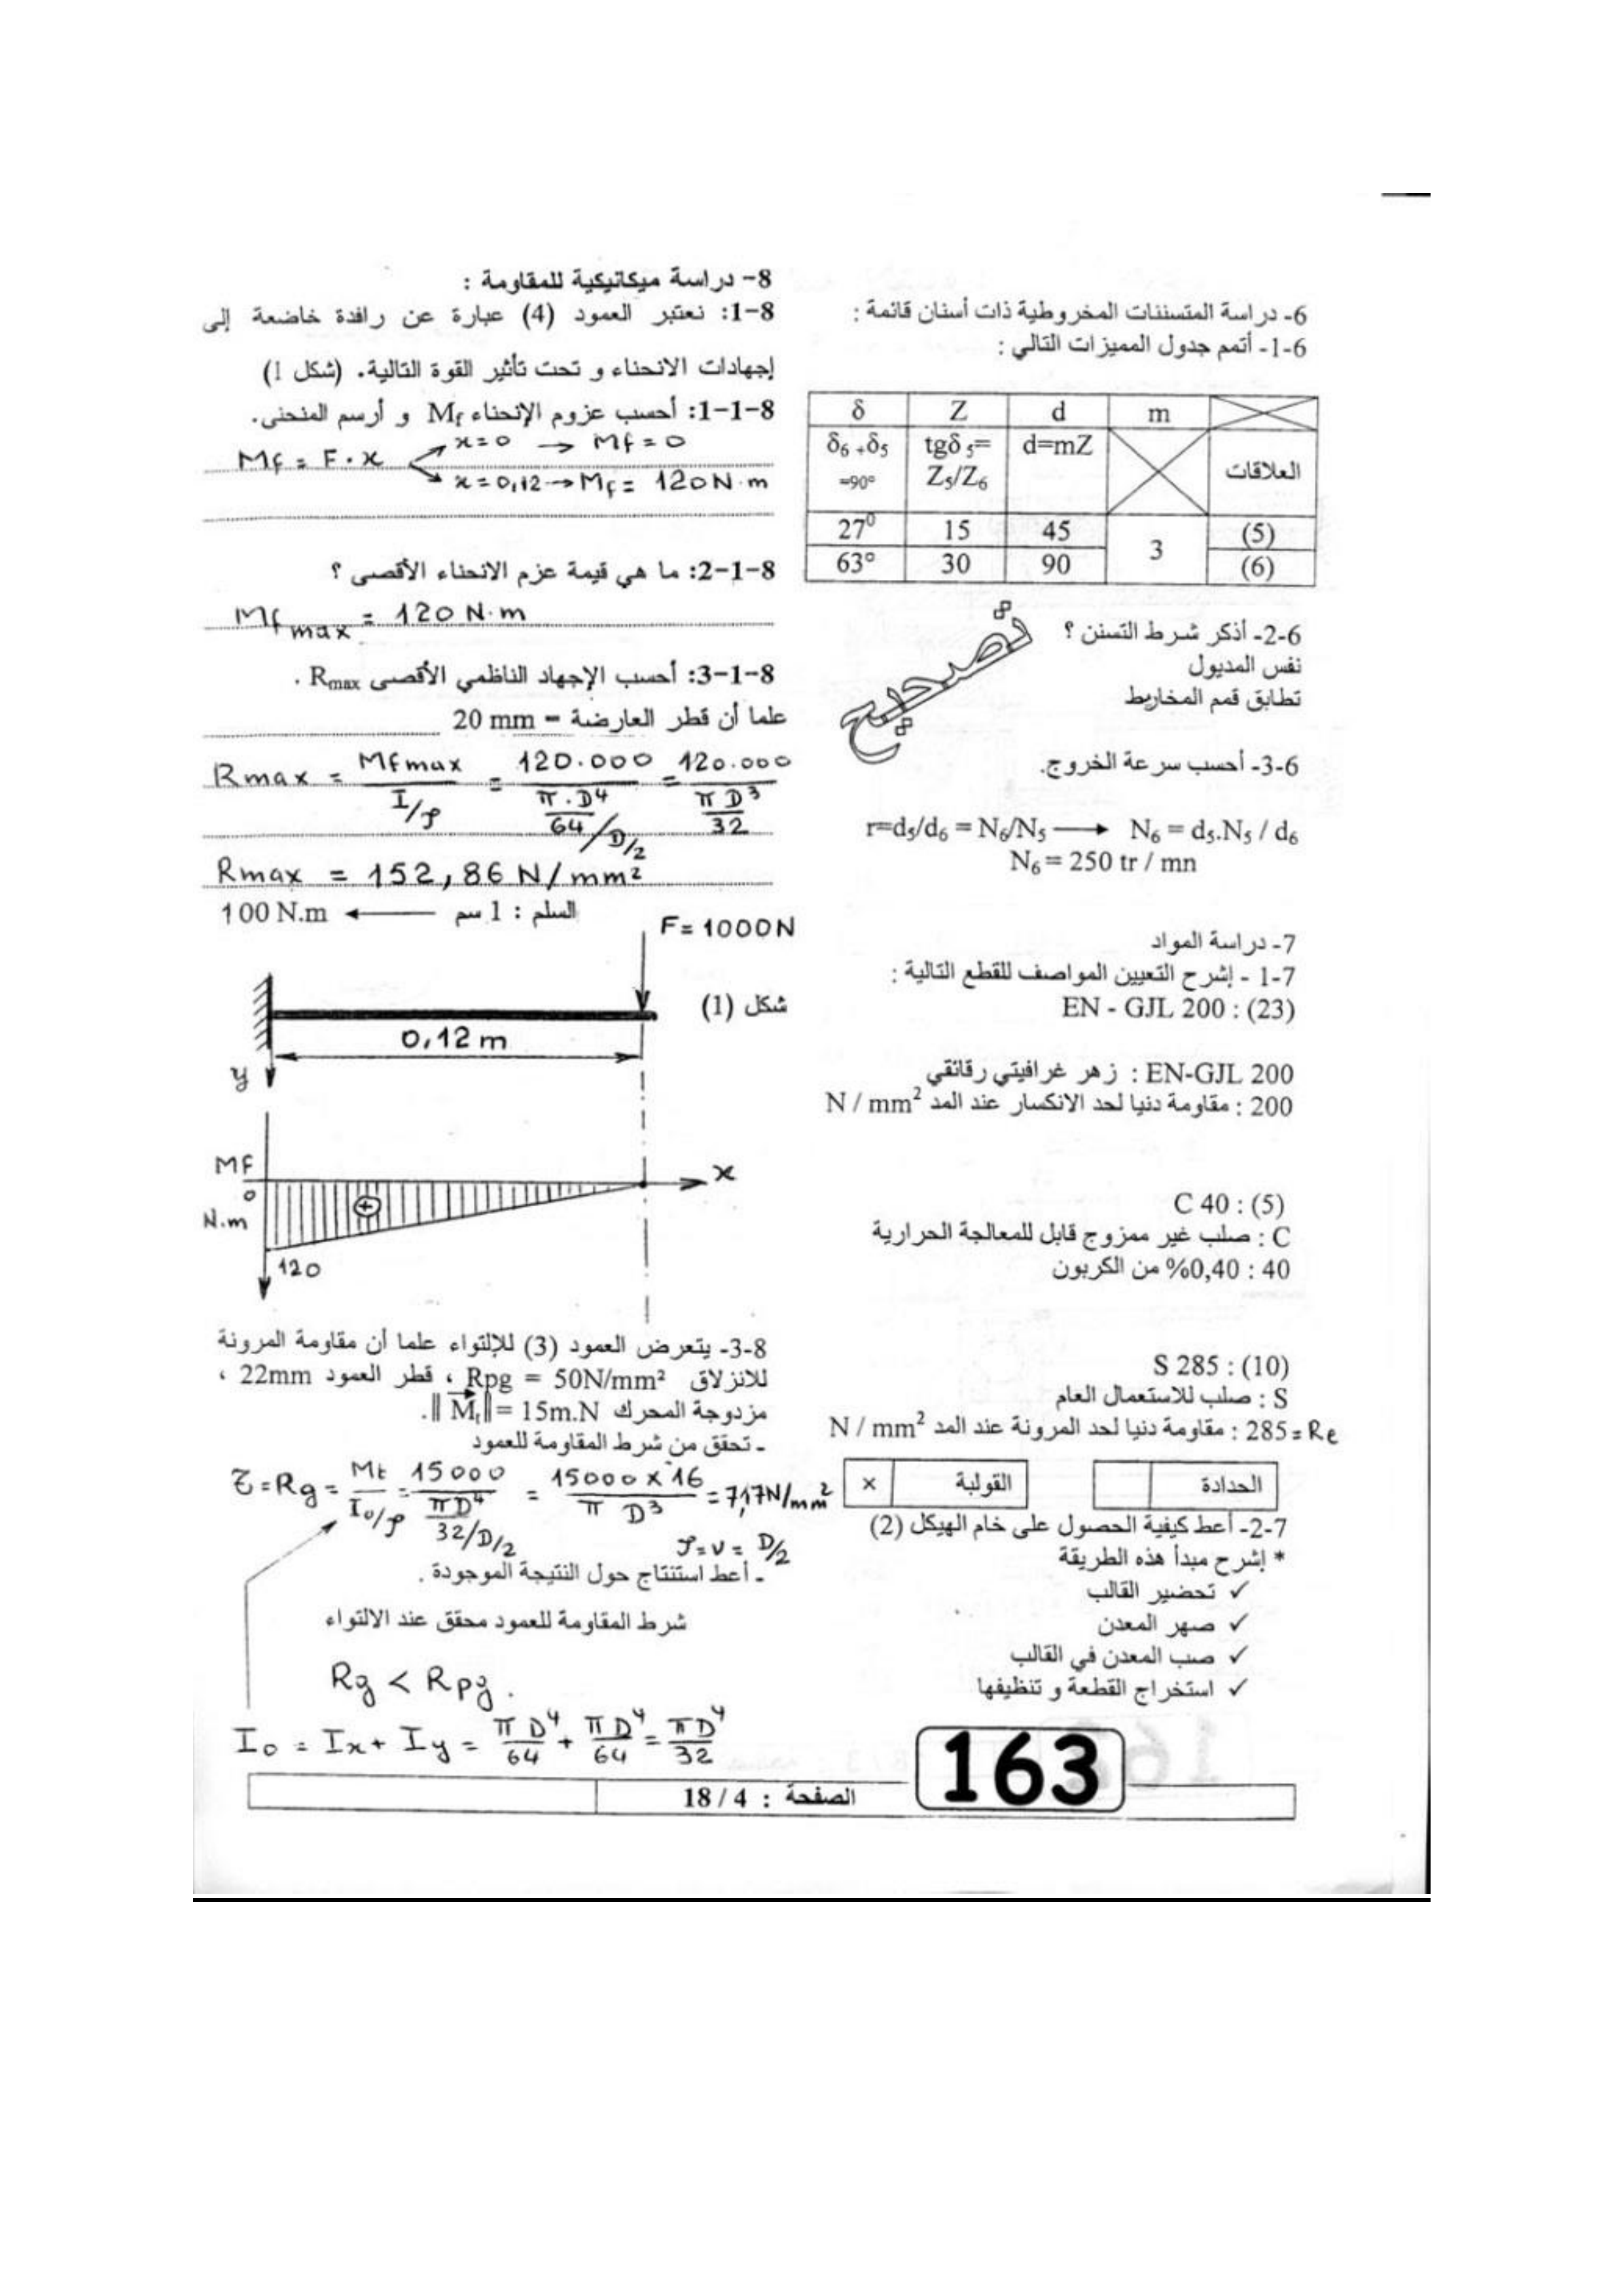 6- دراسة المتسننات المخروطية ذات أسنان قائمة :
6-1- أتمم جدول المميزات التالي :
m d Z δ
العلاقات d=mZ tgδ5= Z5/Z6 δ6 +δ5 =90°
(5) 3 45 15 27⁰
(6) 90 30 63°
6-2- أذكر شرط التسنن ؟
نفس المديول
تطابق قمم المخاريط
تصحيح
6-3- أحسب سرعة الخروج.
r=d5/d6 = N6/N5 ⟶ N6 = d5.N5 / d6
N6 = 250 tr / mn
7- دراسة المواد
7-1 - إشرح التعيين المواصف للقطع التالية :
EN - GJL 200 : (23)
EN-GJL 200 : زهر غرافيتي رقائقي
200 : مقاومة دنيا لحد الانكسار عند المد N / mm²
C 40 : (5)
C : صلب غير ممزوج قابل للمعالجة الحرارية
40 : 0,40% من الكربون
S 285 : (10)
S : صلب للاستعمال العام
285 = Re : مقاومة دنيا لحد المرونة عند المد N / mm²
الحدادة القولبة ×
7-2- أعط كيفية الحصول على خام الهيكل (2)
* إشرح مبدأ هذه الطريقة
✓ تحضير القالب
✓ صهر المعدن
✓ صب المعدن في القالب
✓ استخراج القطعة و تنظيفها
8- دراسة ميكانيكية للمقاومة :
8-1: نعتبر العمود (4) عبارة عن رافدة خاضعة إلى
إجهادات الانحناء و تحت تأثير القوة التالية. (شكل 1)
8-1-1: أحسب عزوم الإنحناء Mf و أرسم المنحنى.
x=0 → Mf = 0
Mf = F·x
x = 0,12 → Mf = 120 N·m
8-1-2: ما هي قيمة عزم الانحناء الأقصى ؟
Mf max = 120 N·m
8-1-3: أحسب الإجهاد الناظمي الأقصى Rmax .
علما أن قطر العارضة = 20 mm
Rmax = Mfmax / (I/ρ) = 120.000 / (π.D⁴/64 / D/2) = 120.000 / (πD³/32)
Rmax = 152,86 N/mm²
السلم : 1 سم ⟶ 100 N.m
F = 1000N
شكل (1)
0,12 m
y
MF
x
0
N.m
+
120
8-3- يتعرض العمود (3) للإلتواء علما أن مقاومة المرونة
للانزلاق Rpg = 50N/mm² ، قطر العمود 22mm ،
مزدوجة المحرك ‖Mt‖ = 15m.N.
- تحقق من شرط المقاومة للعمود
τ = Rg = Mt / (I0/ρ) = 15000 / (πD⁴/32 / D/2) = 15000 x 16 / π D³ = 7,17N/mm²
ρ = v = D/2
- أعط استنتاج حول النتيجة الموجودة .
شرط المقاومة للعمود محقق عند الالتواء
Rg < Rpg .
I0 = Ix + Iy = πD⁴/64 + πD⁴/64 = πD⁴/32
163
الصفحة : 4 / 18